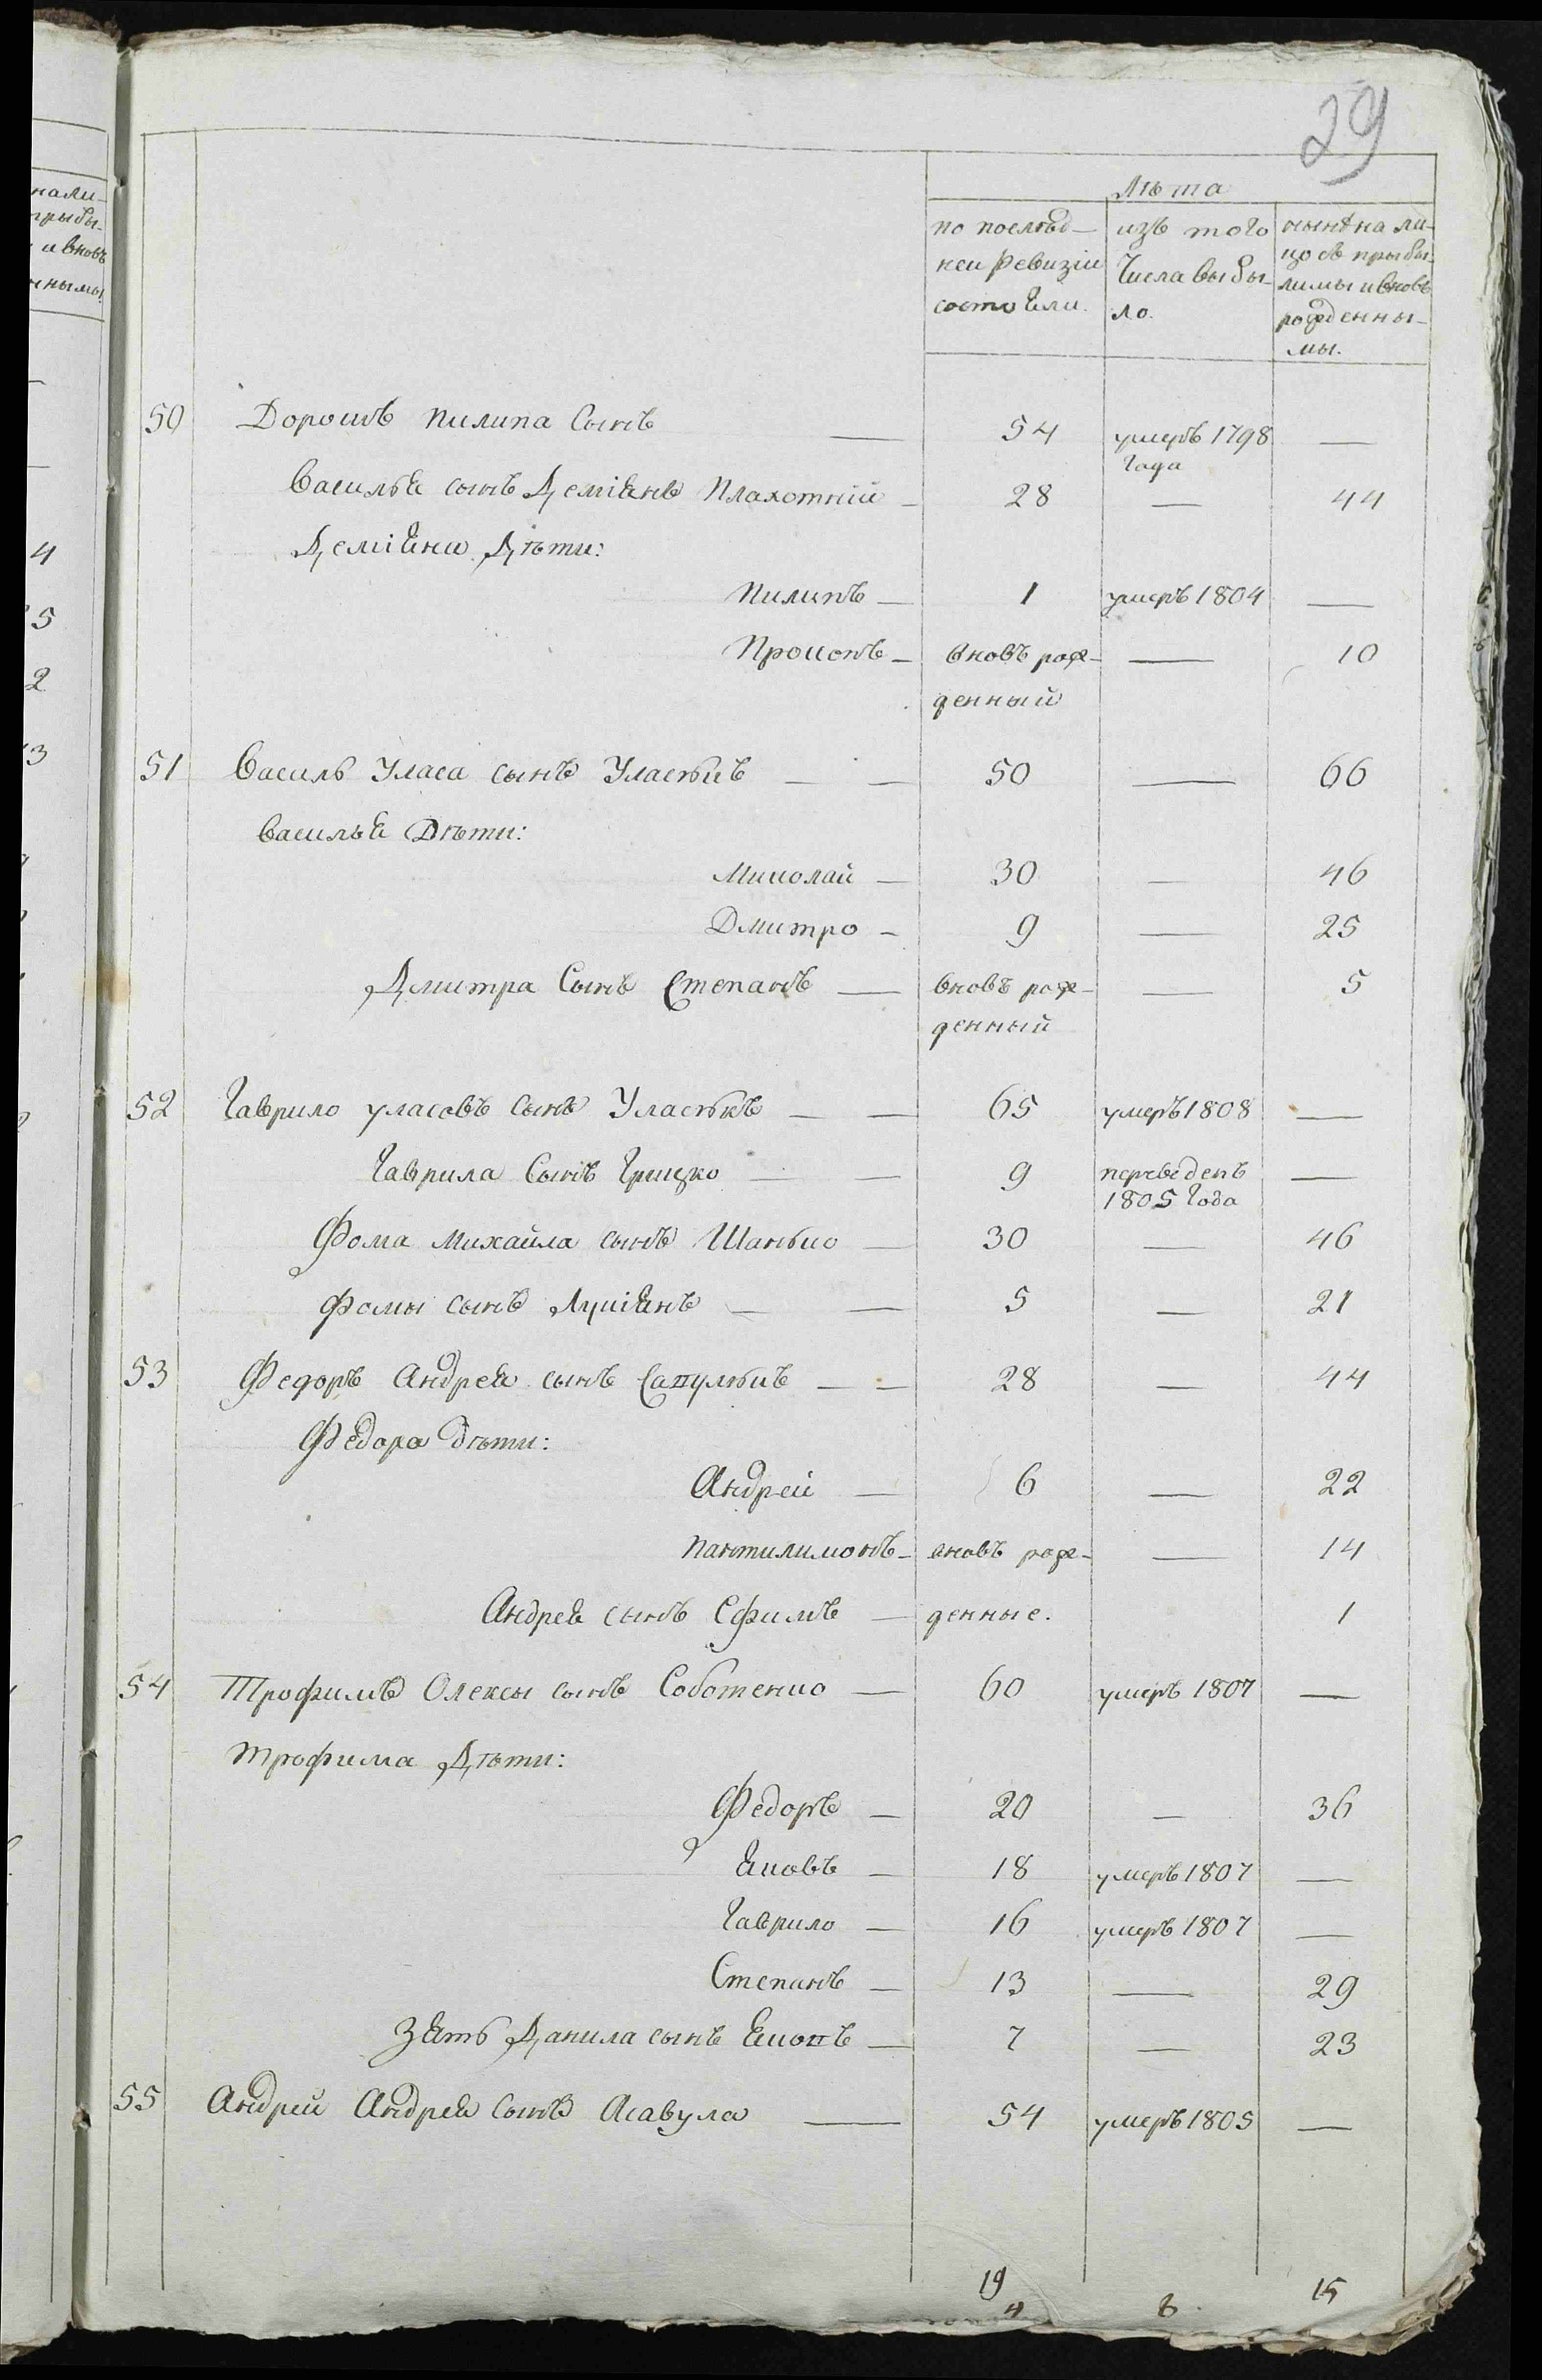 29
Лѣта
по послѣд-
ней ревизіи
состояли.
изъ того
числа выбы-
ло.
нынѣ на ли-
цо съ прыбы-
лимы и вновь
рожденны-
мы.
50 Дорошъ Пилипа сынъ — 54 умеръ 1798 года —
Василья сынъ Деміянъ Плахотній — 28 — 44
Деміяна Дѣти:
Пилипъ — 1 умеръ 1804 —
Прокопъ — вновь рож- — 10
денный
51 Василь Уласа сынъ Уласѣкъ — — 50 — 66
Василья Дѣти:
Миколай — 30 — 46
Дмитро — 9 — 25
Дмитра сынъ Степанъ — вновь рож- — 5
денный
52 Гаврило Уласовъ сынъ Уласѣкъ — — 65 умеръ 1808 —
Гаврила сынъ Грицко — — 9 переведенъ 1805 года —
Фома Михайла сынъ Шанько — 30 — 46
Фомы сынъ Лукіянъ — — 5 — 21
53 Федоръ Андрея сынъ Сапулѣкъ — — 28 — 44
Федора дѣти:
Андрей — 6 — 22
Пантилимонъ — вновь рож- — 14
Андрея сынъ Ефимъ — денные. 1
54 Трофимъ Олексы сынъ Соботенко — 60 умеръ 1807 —
Трофима Дѣти:
Федоръ — 20 — 36
Яковъ — 18 умеръ 1807 —
Гаврило — 16 умеръ 1807 —
Степанъ — 13 — 29
Зять Данила сынъ Якопъ — 7 — 23
55 Андрей Андрея сынъ Асавула — 54 умеръ 1805 —
19
4 8 15